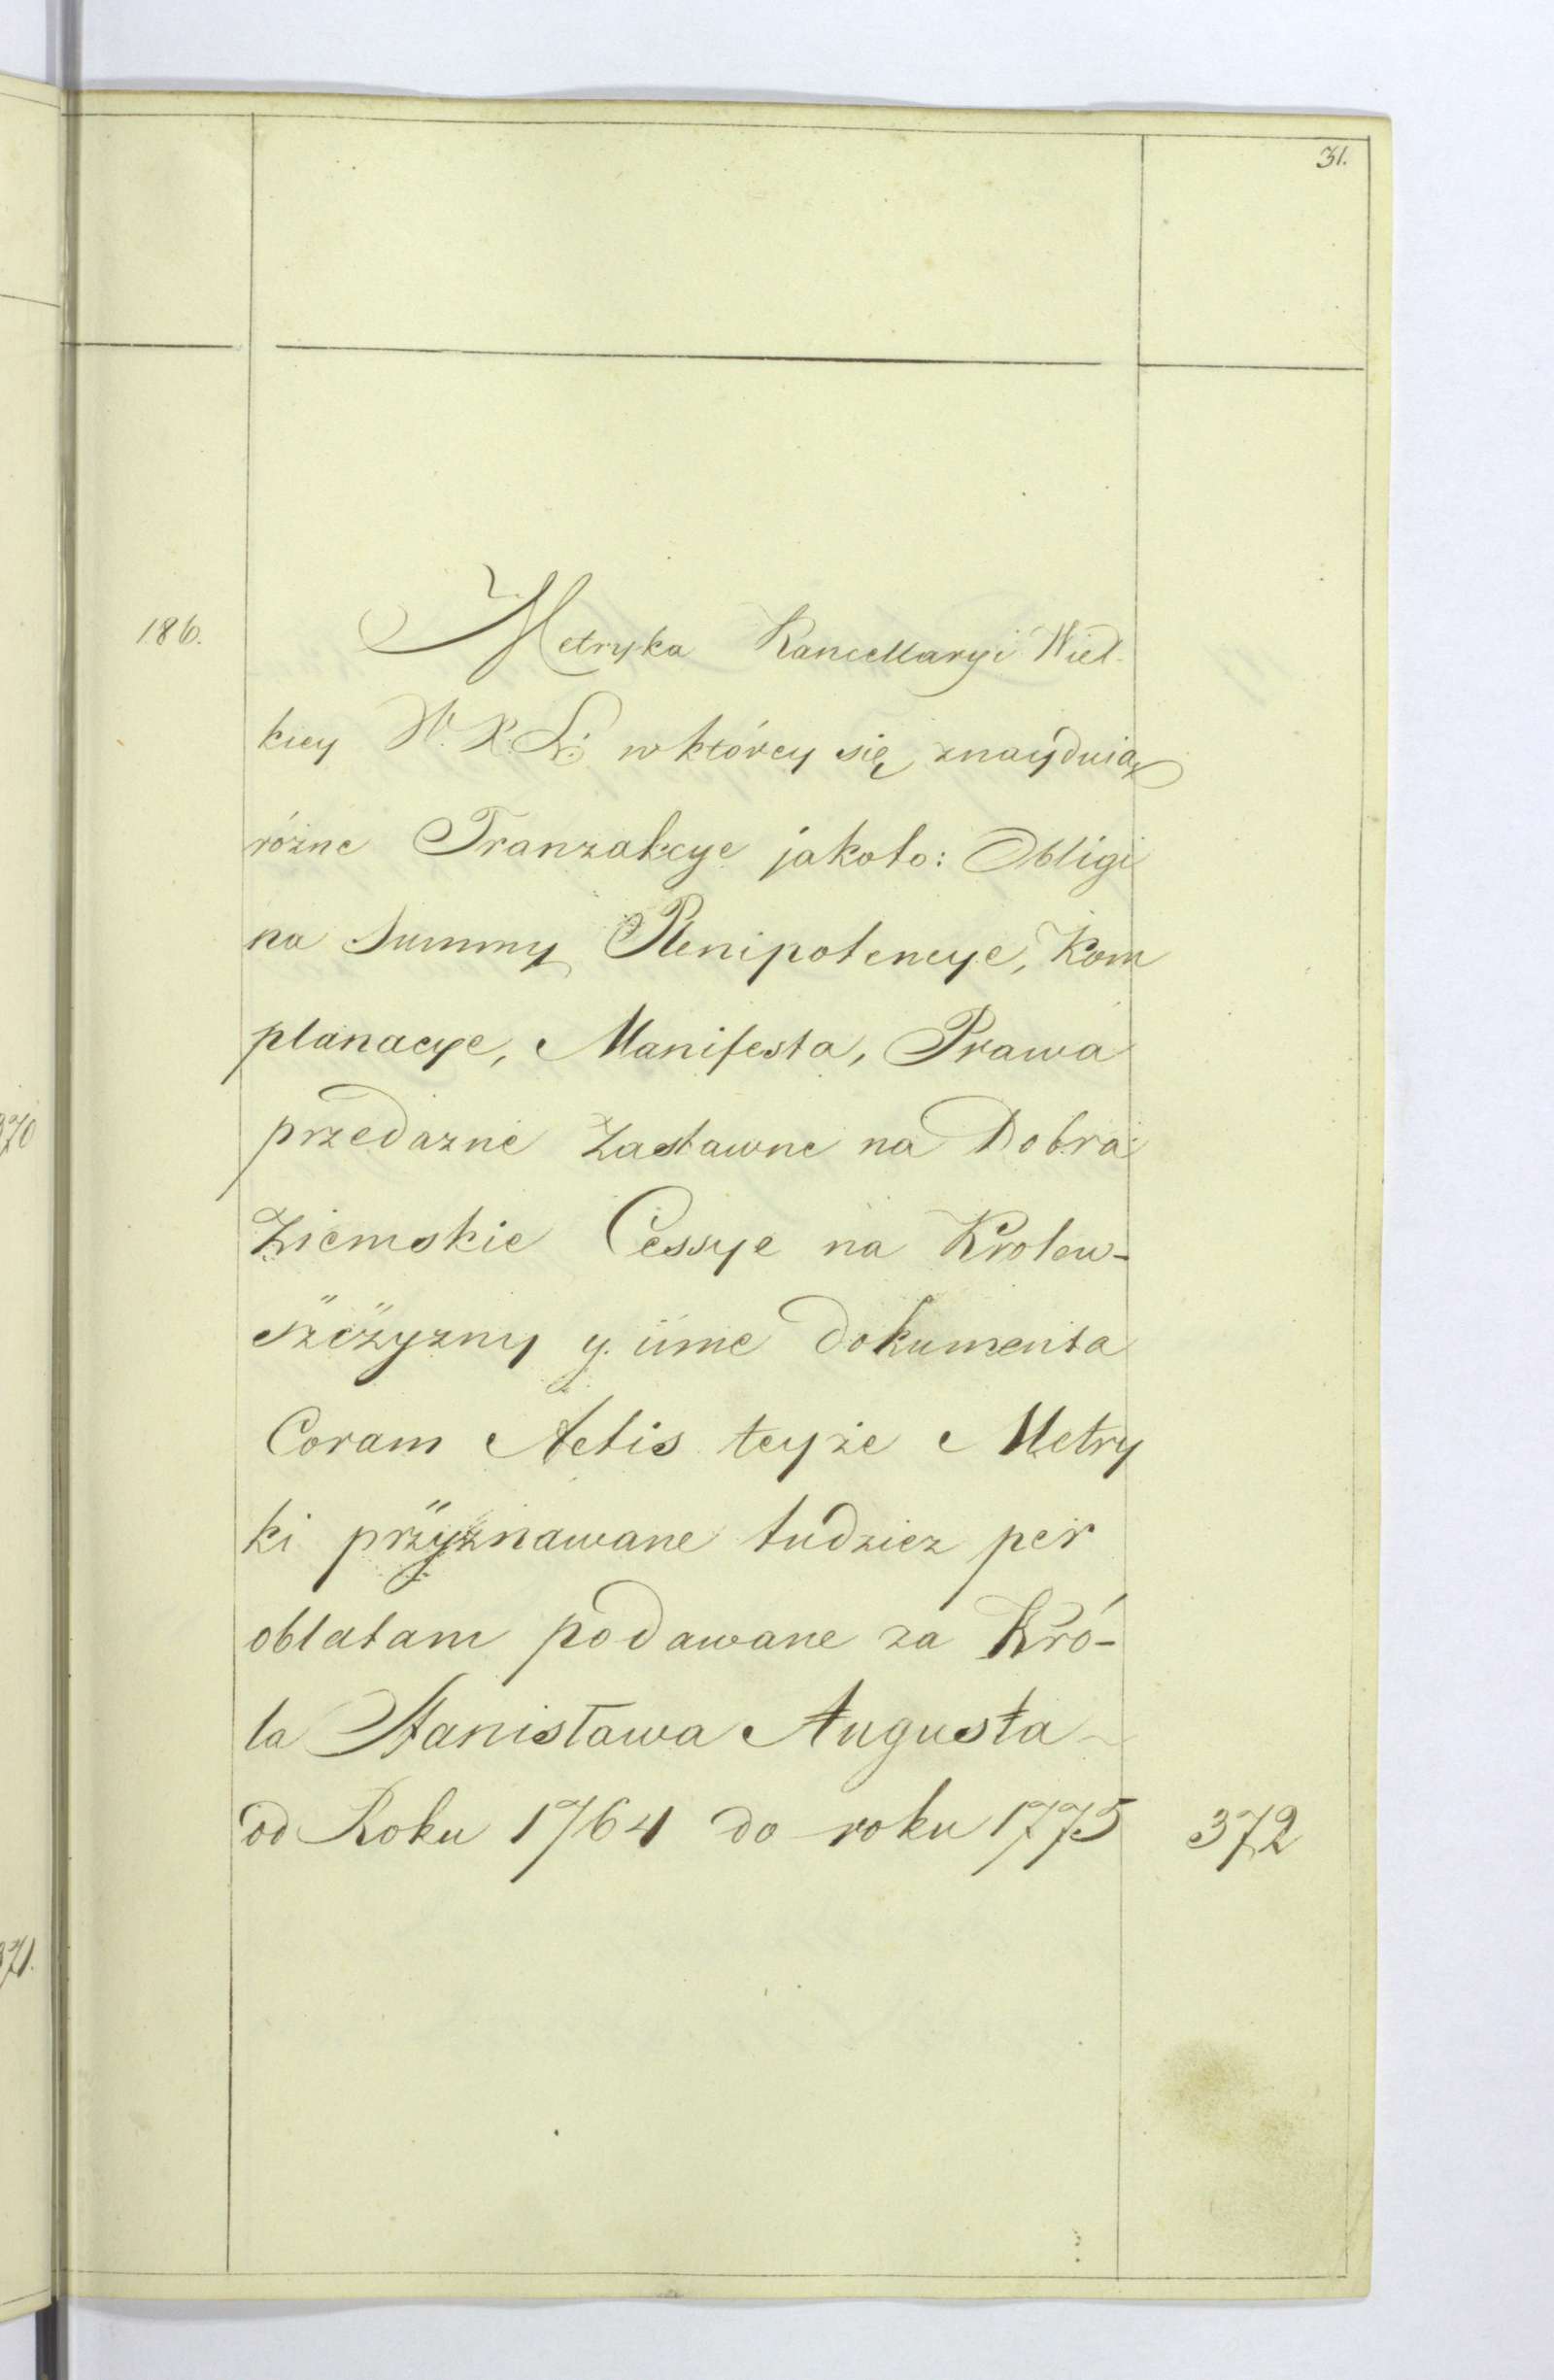 31.
186. Metryka Kancellaryi Wiel-
kiey W. X. L: w którey się znayduią
różne Tranzakcye jakoto: Obligi
na Summy Plenipotencye, Kom
planacye, Manifesta, Prawa
przedazne Zastawne na Dobra
Ziemskie Cessye na Krolew-
szczyzny y inne dokumenta
Coram Actis teyże Metry
ki przyznawane tudziez per
oblatam podawane za Kró-
la Stanisława Augusta
od Roku 1764 do roku 1775 372
370
371.